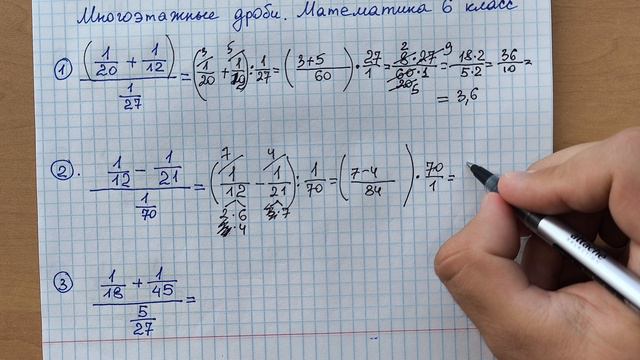 Многоэтажные дроби. Математика 6 класс
1) (1/20 + 1/12) / (1/27) = (1/20 + 1/12) : 1/27 = (3+5 / 60) · 27/1 = 8·27 / 60·1 = 18·2 / 5·2 = 36/10 =
= 3,6
2). (1/12 - 1/21) / (1/70) = (1/12 - 1/21) : 1/70 = (7-4 / 84) · 70/1 =
2·6 3·7
3·4
3) (1/18 + 1/45) / (5/27) =